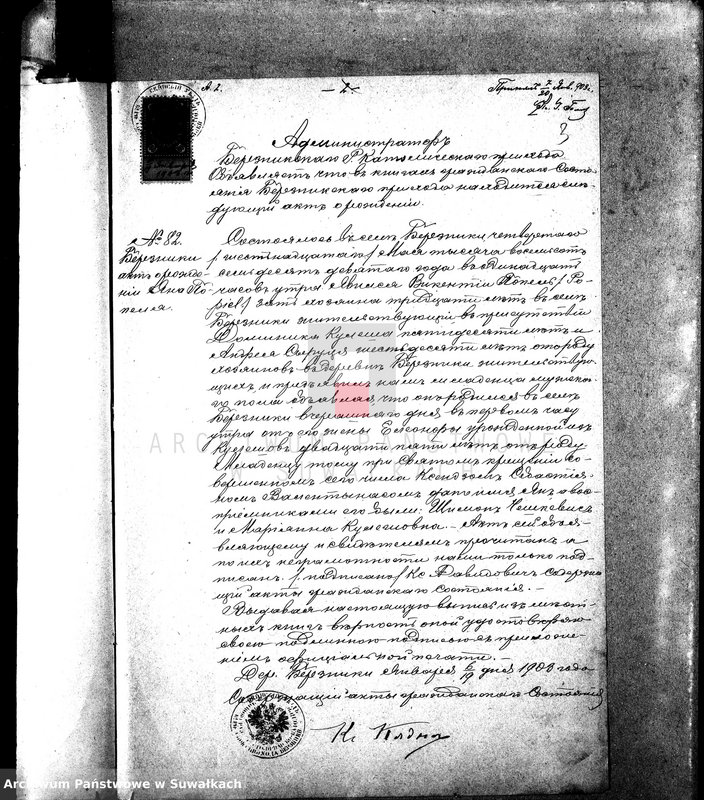 А. 2.
— 2 —
Администраторъ
Березникскаго Р. Католическаго прихода
Объявляетъ что въ книгахъ гражданскаго Состо-
янія Березникскаго прихода находится слѣ-
дующій актъ о рожденіи.
№ 82.
Березники
актъ о рожде-
ніи Яна По-
пеля.
Состоялось въ селѣ Березники четвертаго
/ шестнадцатаго / Мая тысяча восемьсотъ
семьдесятъ девятаго года въ одинадцать
часовъ утра. Явился Викентій Попель / Po-
piel / зять хозяина тридцати лѣтъ въ селѣ
Березники жительствующій въ присутствіи
Доминика Кулеша пятидесяти лѣтъ и
Андрея шестьдесяти лѣтъ отъ роду
хозяиновъ въ деревнѣ Березники жительствую-
щихъ и предъявилъ намъ младенца мужеска-
го пола объявляя, что онъ родился въ селѣ
Березники вчерашняго дня въ первомъ часу
утра отъ его жены Елеоноры урожденной изъ
Кулешовъ двадцати пяти лѣтъ отъ роду.
Младенцу тому при Святомъ крещеніи со-
вершенномъ сего числа Ксендзомъ Севастія-
номъ Валентынасомъ дано имя Янъ, а вос-
пріемниками его были: Шимонъ
и Маріянна Кулешовна. — Актъ сей объя-
вляющему и свидѣтелямъ прочитанъ, а
по ихъ неграмотности нами только под-
писанъ. / подписано / Кс. Давидовичъ содержа-
щій акты гражданскаго состоянія. —
Выдавая настоящую выпись изъ мѣст-
ныхъ книгъ вѣрность оной удостовѣряю
своею подлинною подписью съ приложе-
ніемъ оффиціальной печати. —
Дер. Березники Января 6/19 дня 1903 года
Содержащій акты гражданскаго Состоянія
Кс.
ARCHIWUM PAŃSTWOWE
W SUWAŁKACH
Archiwum Państwowe w Suwałkach